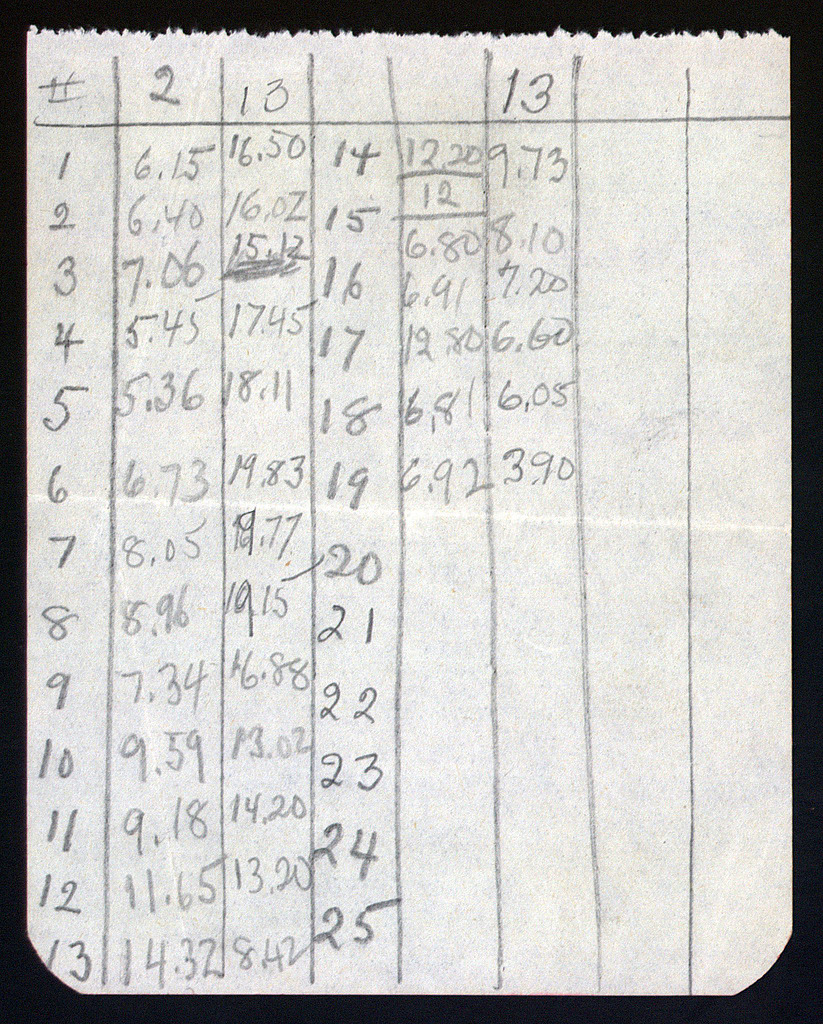 # 2 13 13
1 6.15 16.50 14 12.20 9.73
12
2 6.40 16.02 15 6.80 8.10
3 7.06 15.12 16 6.91 7.20
4 5.45 17.45 17 12.80 6.60
5 5.36 18.11 18 6.81 6.05
6 6.73 19.83 19 6.92 3.90
7 8.05 19.77 20
8 8.96 19.15 21
9 7.34 16.88 22
10 9.59 13.02 23
11 9.18 14.20 24
12 11.65 13.20 25
13 14.32 8.42